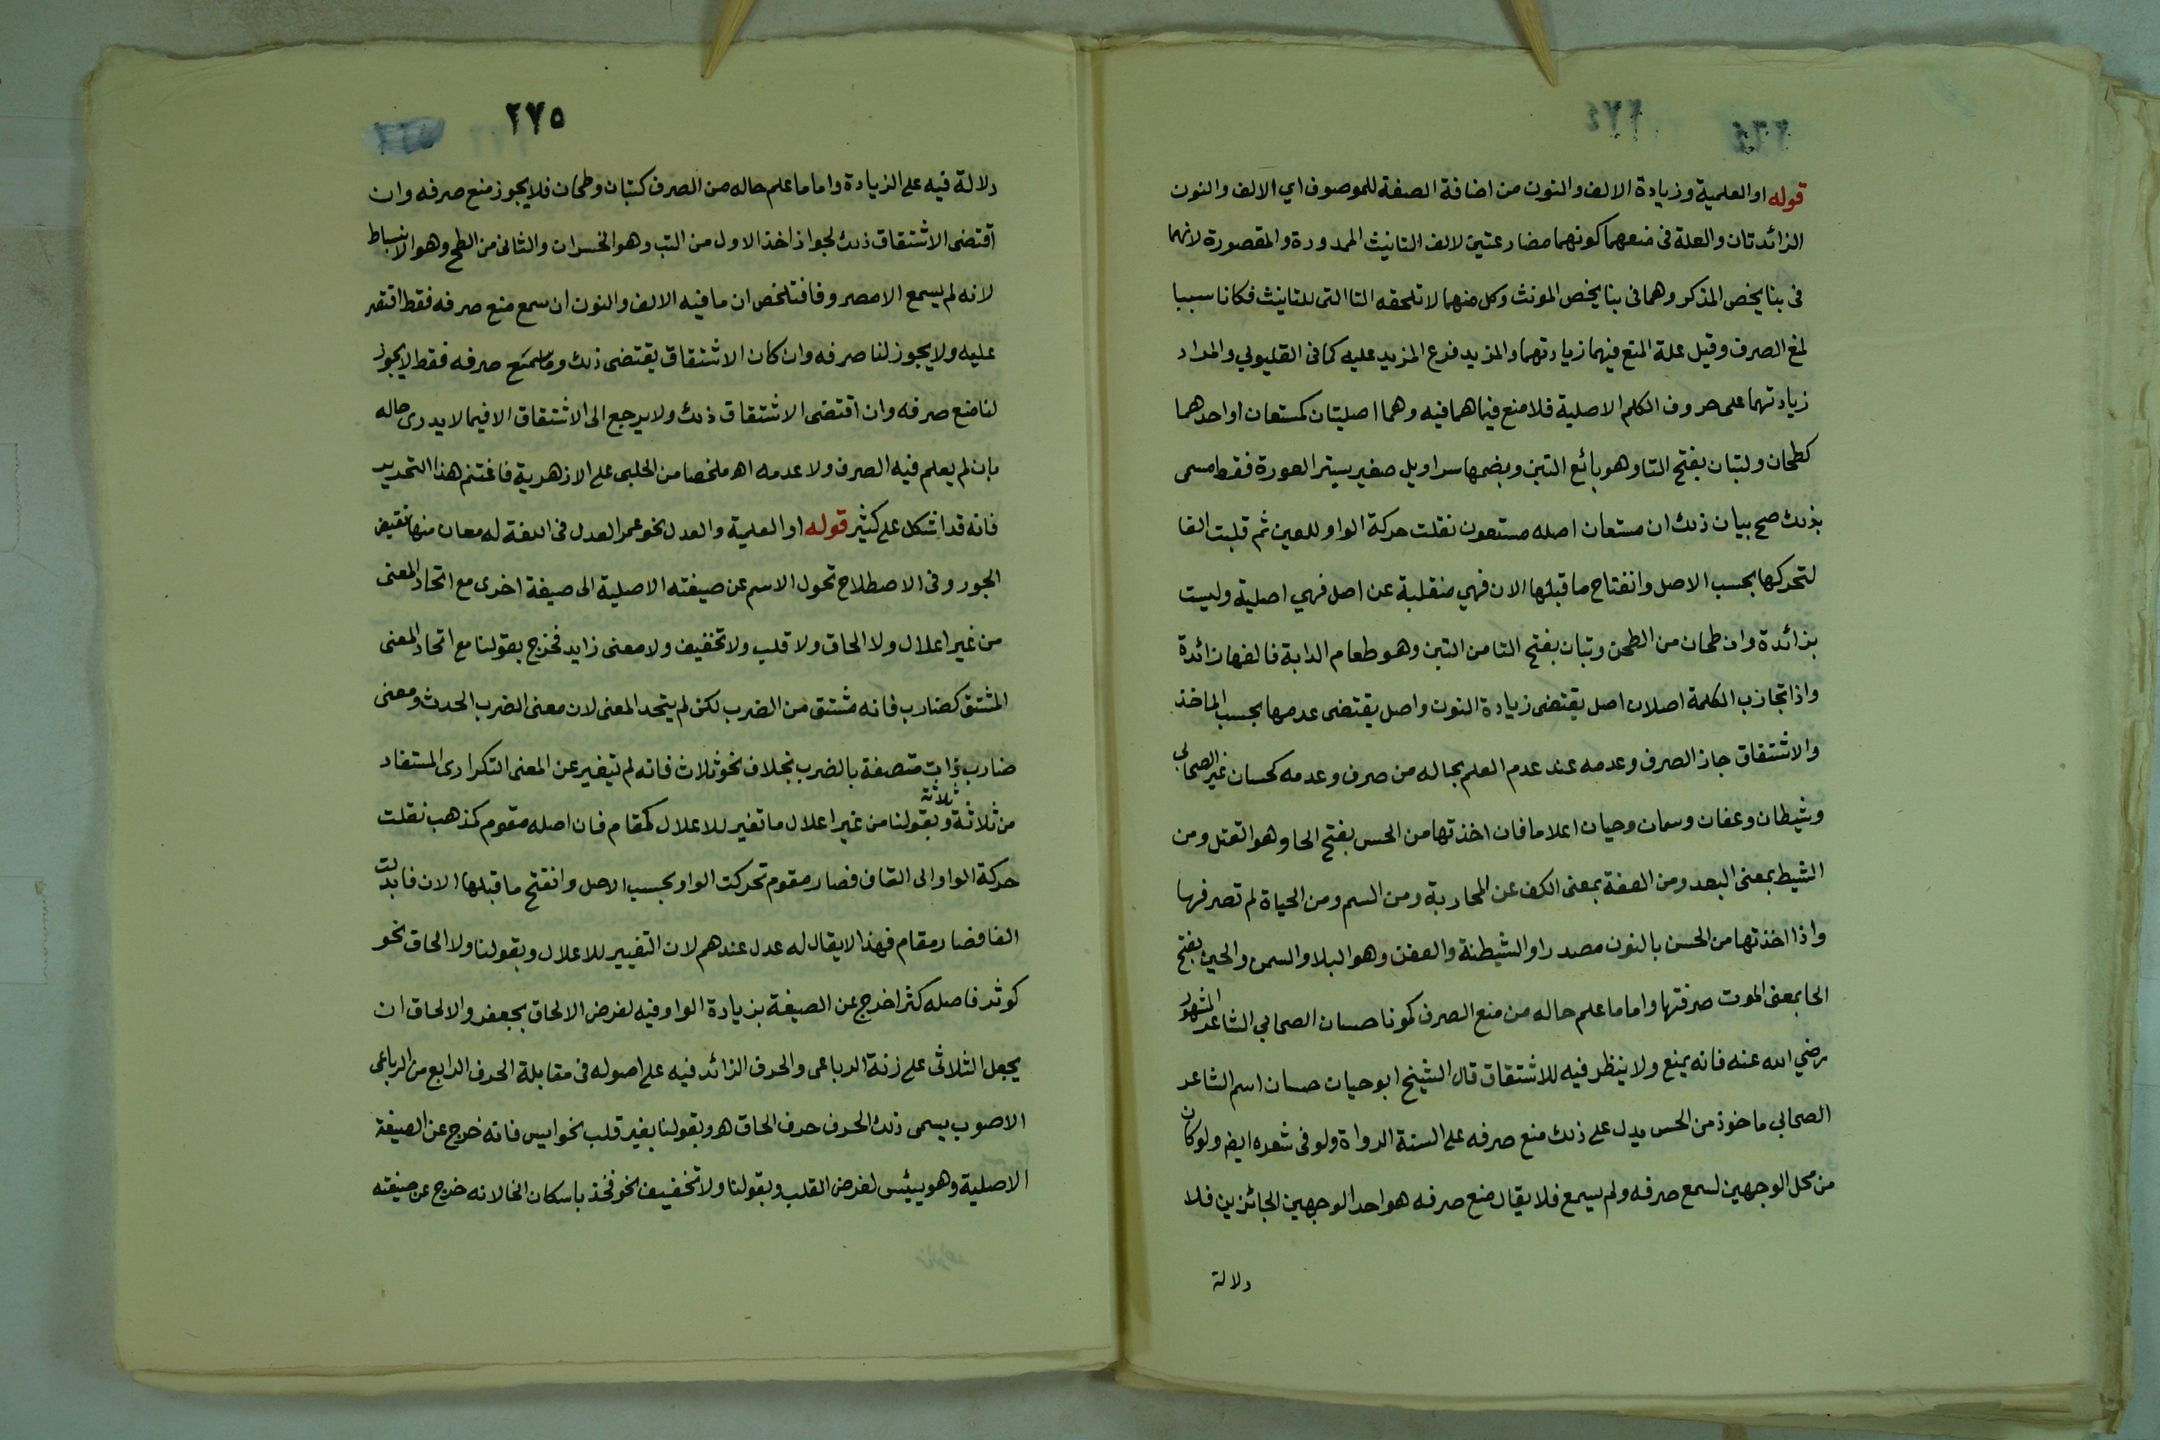 ٢٧٤
قوله او العلمية وزيادة الالف والنون من اضافة الصفة للموصوف اي الالف والنون
الزائدتان والعلة فى منعهما كونهما مضارعتين لالف التانيث الممدودة والمقصورة لانهما
فى بنا يخص المذكر وهما فى بنا يخص المونث وكل منهما لا تلحقه التا التى للتانيث فكانا سببا
لمنع الصرف وقيل علة المنع فيهما زيادتهما والمزيد فرع المزيد عليه كما فى القليوبي والمراد
زيادتهما على حروف الكلم الاصلية فلا منع فيما هما فيه وهما اصليتان كمستعان او احدهما
كطحان ولتبان بفتح التا وهو بائع التبن وبضمها سراويل صغير يستر العورة فقط مسمى
بذلك صح بيان ذلك ان مستعان اصله مستعون نقلت حركة الواو للعين ثم قلبت الفا
لتحركها بحسب الاصل وانفتاح ما قبلها الان فهي منقلبة عن اصل فهي اصلية وليست
بزائدة وان طحان من الطحن وتبان بفتح التا من التبن وهو طعام الدابة فالفهما زائدة
واذا تجاذب الكلمة اصلان اصل يقتضى زيادة النون واصل يقتضى عدمها بحسب الماخذ
والاشتقاق جاز الصرف وعدمه عند عدم العلم بحاله من صرف وعدمه كحسان غير الصحابي
وشيطان وعفان وسمان وحيان اعلاما فان اخذتها من الحس بفتح الحا وهو القتل ومن
الشيط بمعنى البعد ومن العفة بمعنى الكف عن المحاربة ومن السم ومن الحياة لم تصرفها
واذا اخذتها من الحسن بالنون مصدرا والشيطنة والعفن وهو البلا والسمن والحين بفتح
الحا بمعنى الموت صرفتها واما ما علم حاله من منع الصرف كونا حسان الصحابي الشاعر المشهور
رضي الله عنه فانه يمنع ولا ينظر فيه للاشتقاق قال الشيخ ابو حيان حسان اسم الشاعر
الصحابي ماخوذ من الحس يدل على ذلك منع صرفه على السنة الرواة ولو فى شعره ايض ولو كان
من محل الوجهين لسمع صرفه ولم يسمع فلا يقال منع صرفه هو احد الوجهين الجائزين فلا
دلالة
٢٧٥
دلالة فيه على الزيادة واما ما علم حاله من الصرف كتبان وطحان فلا يجوز منع صرفه وان
اقتضى الاشتقاق ذلك لجواز اخذ الاول من التب وهو الخسران والثانى من الطح وهو الانبساط
لانه لم يسمع الا مصروفا فتلخص ان ما فيه الالف والنون ان سمع منع صرفه فقط اقتصر
عليه ولا يجوز لنا صرفه وان كان الاشتقاق يقتضى ذلك وما سمع صرفه فقط لا يجوز
لنا منع صرفه وان اقتضى الاشتقاق ذلك ولا يرجع الى الاشتقاق الا فيما لا يدرى حاله
بان لم يعلم فيه الصرف ولا عدمه اهـ ملخصا من الحلبى على الازهرية فاغتنم هذا التحرير
فانه قد اشكل على كثير قوله او العلمية والعدل نحو عمر العدل فى اللغة له معان منها نقيض
الجور وفى الاصطلاح تحول الاسم عن صيغته الاصلية الى صيغة اخرى مع اتحاد المعنى
من غير اعلال ولا الحاق ولا قلب ولا تخفيف ولا معنى زايد فخرج بقولنا مع اتحاد المعنى
المشتق كضارب فانه مشتق من الضرب لكن لم يتحد المعنى لان معنى الضرب الحدث ومعنى
ضارب ذات متصفة بالضرب بخلاف نحو ثلاث فانه لم يتغير عن المعنى التكرارى المستفاد
من ثلاثة ثلاثة وبقولنا من غير اعلال ما تغير للاعلال كمقام فان اصله مقوم كذهب نقلت
حركة الواو الى القاف فصار مقوم تحركت الواو بحسب الاصل وانفتح ما قبلها الان فابدلت
الفا فصار مقام فهذا لا يقال له عدل عندهم لان التغيير للاعلال وبقولنا ولا الحاق نحو
كوثر فاصله كثر اخرج عن الصيغة بزيادة الواو فيه لغرض الالحاق بجعفر والالحاق ان
يجعل الثلاثى على زنة الرباعى والحرف الزائد فيه على اصوله فى مقابلة الحرف الرابع من الرباعى
الاصوب يسمى ذلك الحرف حرف الحاق هـ وبقولنا بغير قلب نحو ايس فانه خرج عن الصيغة
الاصلية وهو يئيس لغرض القلب وبقولنا ولا تخفيف نحو فخذ باسكان الخا لانه خرج عن صيغته